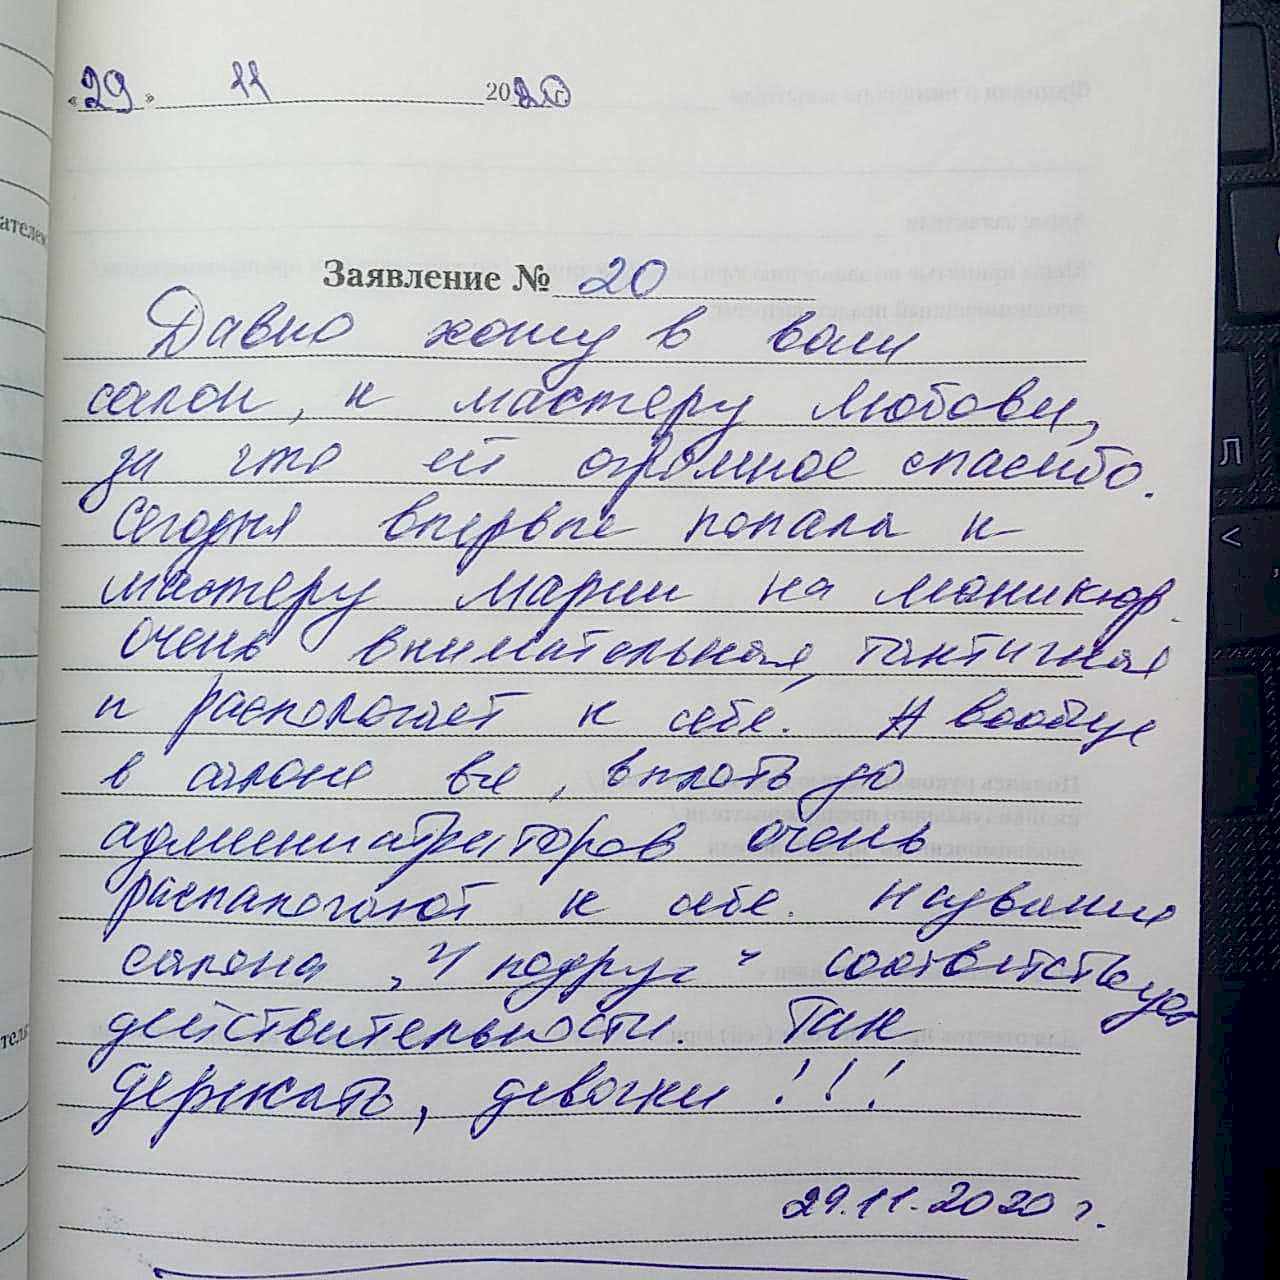 «29» 11 2020
ателем
Заявление № 20
Давно хожу в ваш
салон, к мастеру Любови,
за что ей огромное спасибо.
Сегодня впервые попала к
мастеру Марии на маникюр.
Очень внимательная, тактичная
и распологает к себе. А вообще
в салоне все, вплоть до
администраторов очень
распалогают к себе. Название
салона „У подруг“ соответствует
действительности. Так
держать, девочки!!!
29.11.2020 г.